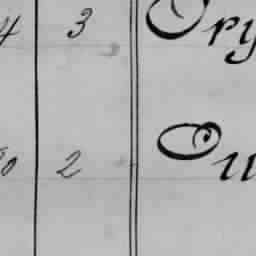 4 3 Ory
0 2 Ou